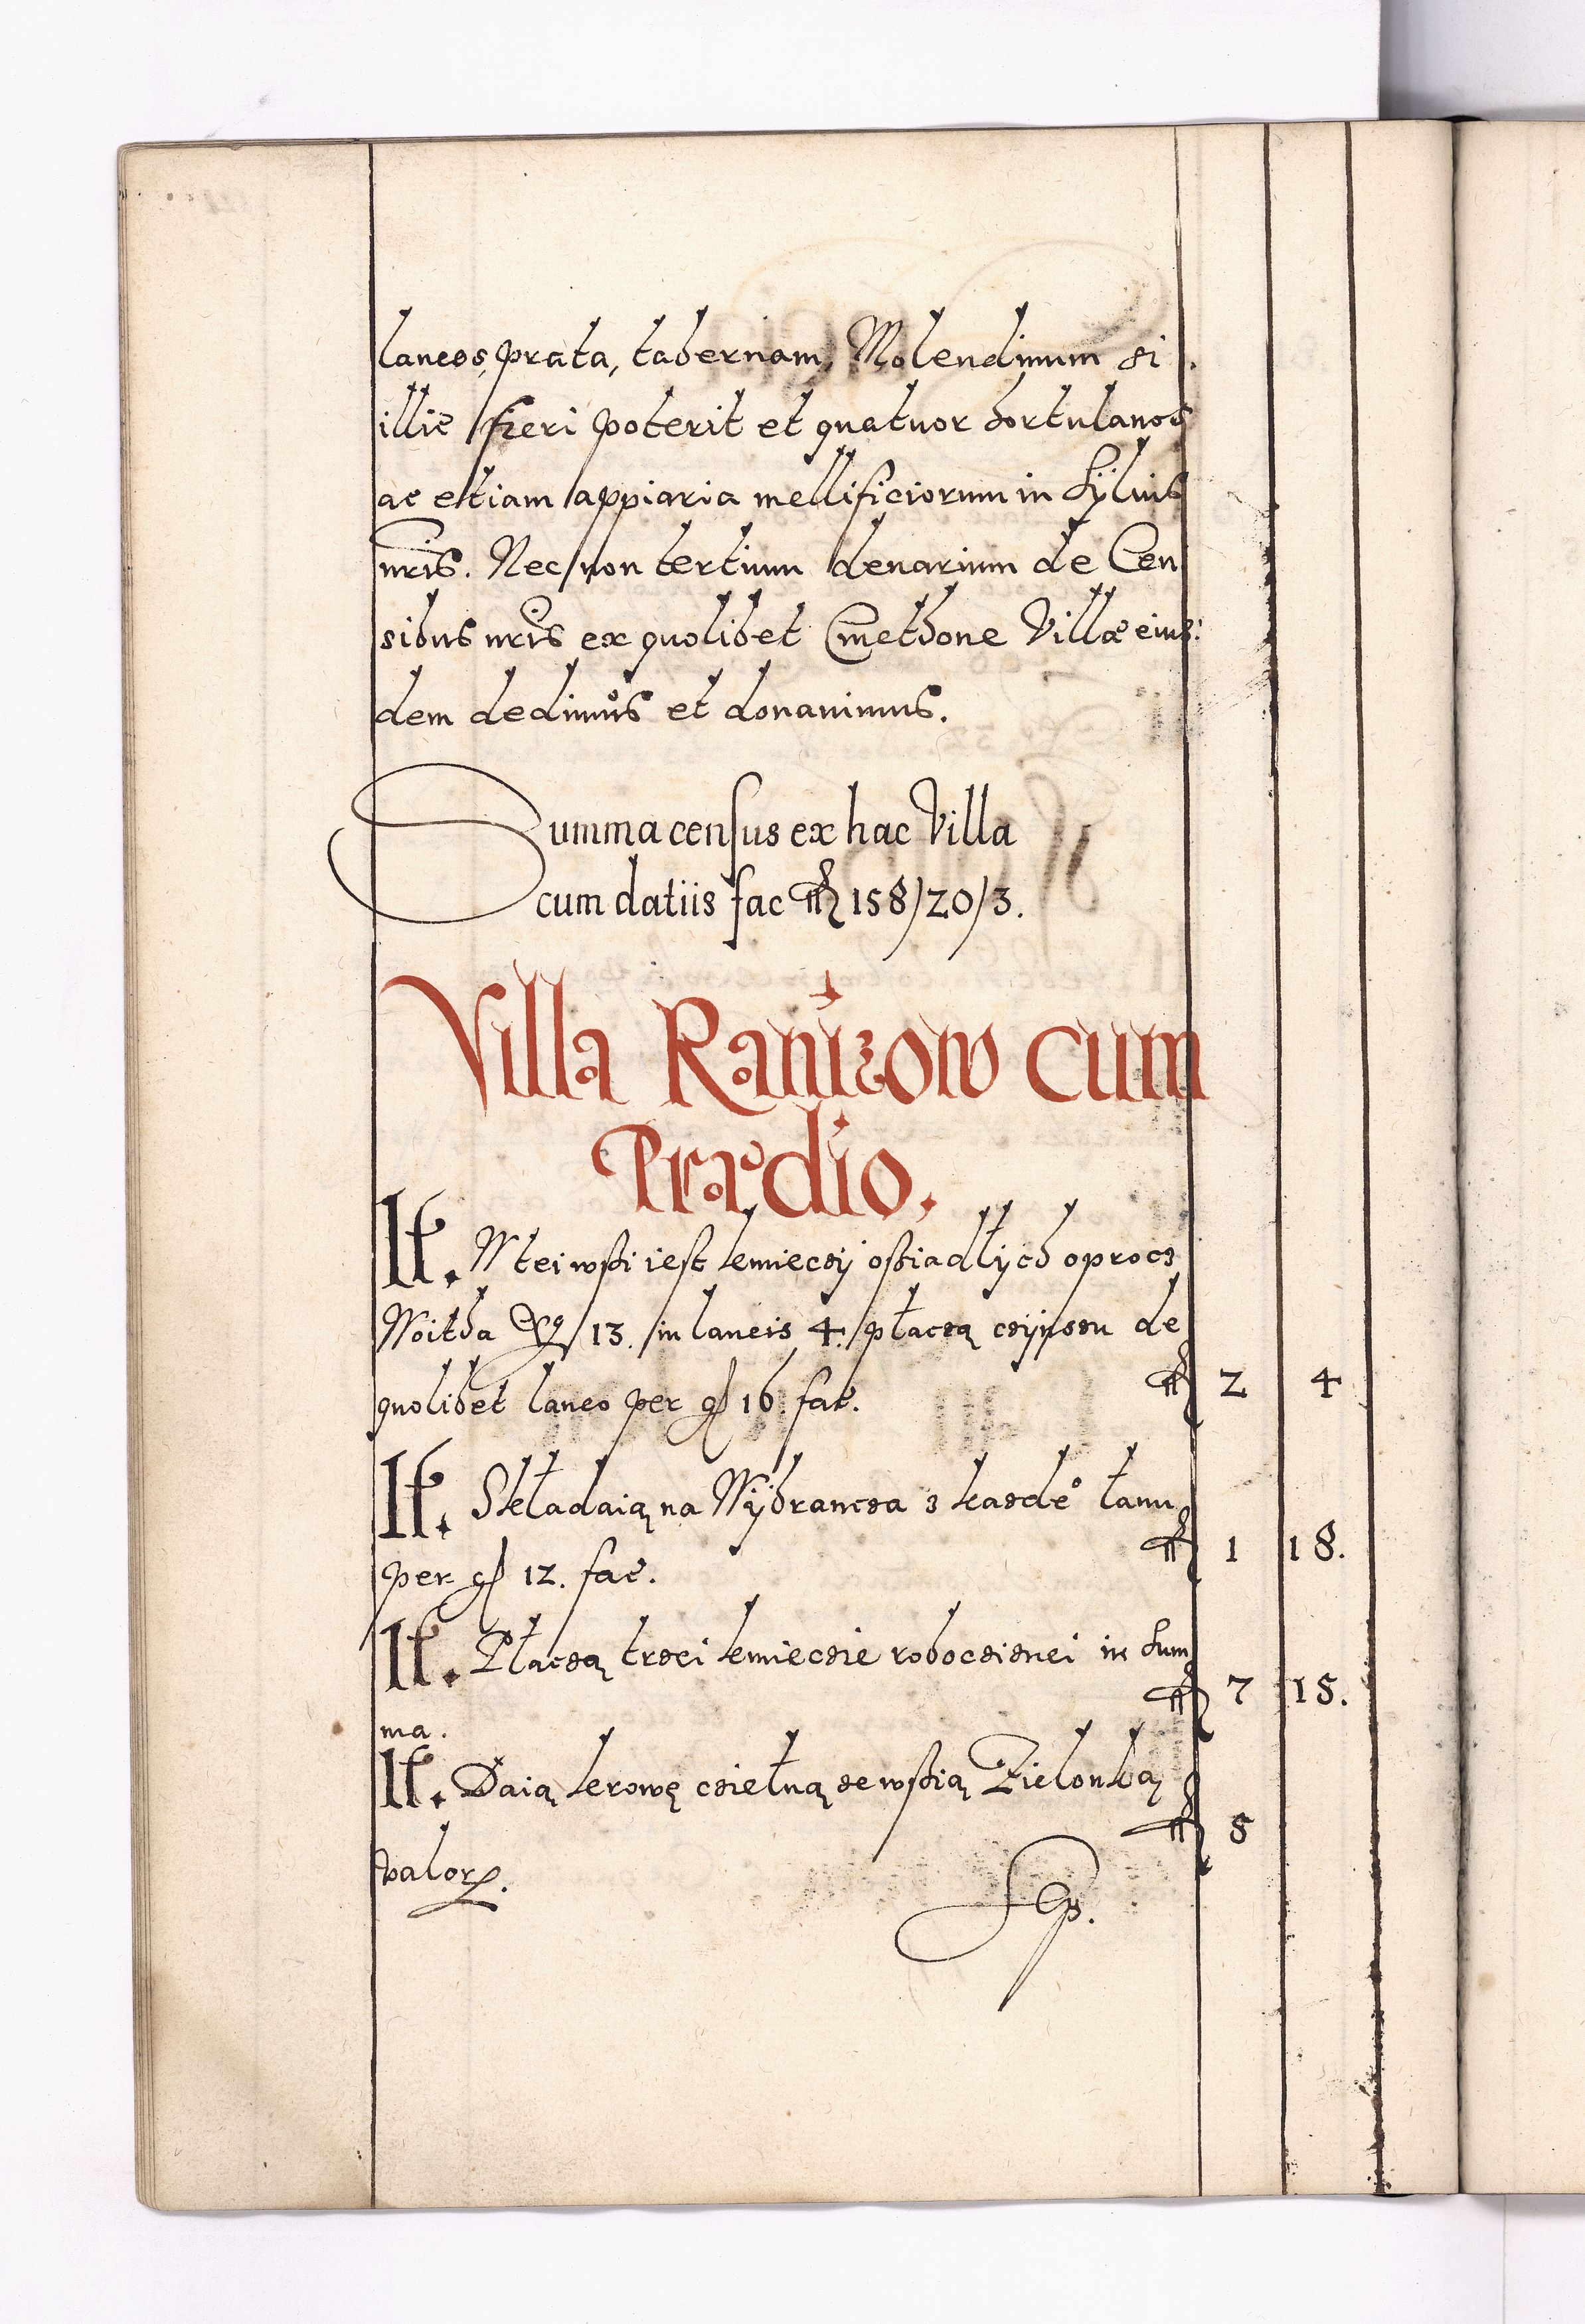 laneos, prata, tabernam, Molendinum si
illic fieri poterit et quatuor hortulanos
ac etiam appiaria mellificiorum in Sylvis
nris. Nec non tertium denarium de Cen
sibus nris ex quolibet Cmethone Villæ eius:
dem dedimus et donavimus.
Summa census ex hac Villa
cum datiis fac 158/20/3.
Villa Ranizow cum
Prædio.
It. W tei wsi iest kmieczÿ osiadłÿch oprocz
Woitha 13. in laneis 4. płaczą czÿnszu de
quolibet laneo per g 16. fac. 2 4
It. Składaią na Wÿbrancza z kazdeº łanu
per g 12. fac. 1 18.
It. Płaczą trzei kmieczie robocziznei in Sum
ma. 7 15.
It. Daią krowę czielną ze wsią Zielonką
valor. 5